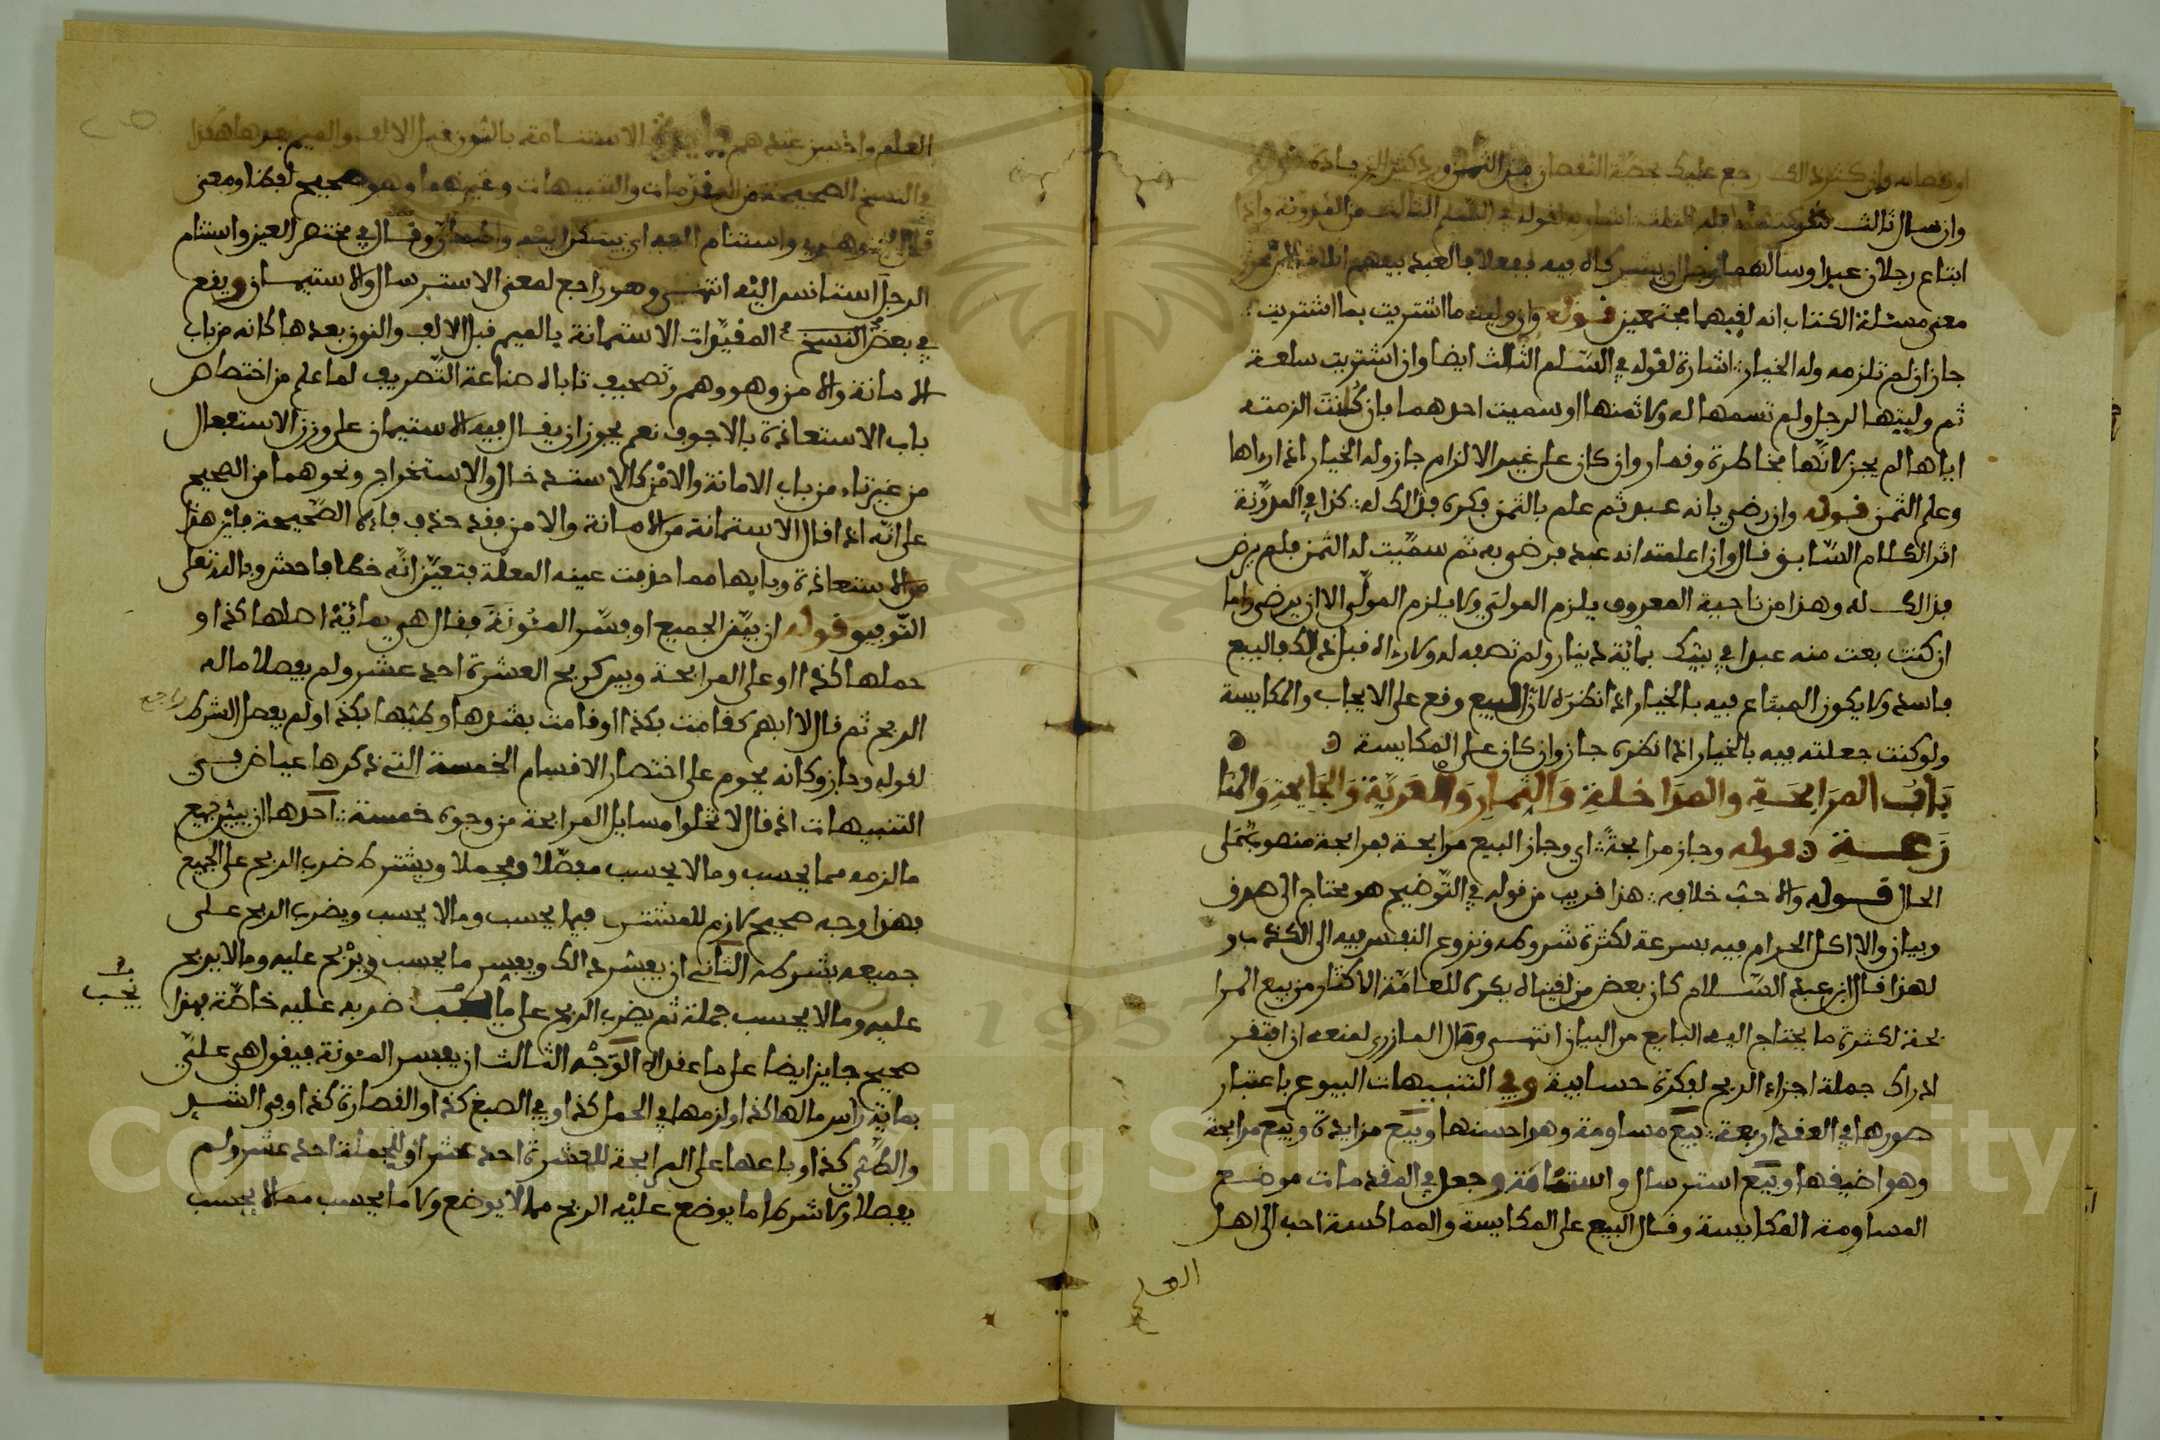 او نقصانه وان كثر ذالك رجع عليك بحصة النقصان من الثمن ورد كثير الزيادة
وان سال ثالث شركتهما فله الثلث اشار به لقوله في السلم الثالث من المدونة واذا
ابتاع رجلان عبدا وسالهما رجل ان يشركاه فيه ففعلا فالعبد بينهم اثلاثا
معنى مسئلة الكتاب انه لقيهما مجتمعين قوله وان وليت ما اشتريت بما اشتريت
جاز ان لم تلزمه وله الخيار اشارة لقوله في السلم الثالث ايضا وان اشتريت سلعة
ثم وليتها لرجل ولم تسمها له ولا ثمنها او سميت احدهما فان كنت الزمته
اياها لم يجز لانها مخاطرة وقمار وان كان على غير الالزام جاز وله الخيار اذا رءاها
وعلم الثمن قوله وان رضي بانه عبد ثم علم بالثمن فكره فذالك له كذا في المدونة
اثر الكلام السابق قال وان اعلمته انه عبد فرضي به ثم سميت له الثمن فلم يرض
فذالك له وهذا من ناحية المعروف يلزم المولي ولا يلزم المولى الا ان يرضى واما
ان كنت بعت منه عبدا في بيتك بمائة دينار ولم تصفه له ولا رءاه قبل ذالك فالبيع
فاسد ولا يكون المبتاع فيه بالخيار اذا نظره لان البيع وقع على الايجاب والمكايسة
ولو كنت جعلته فيه بالخيار اذا نظره جاز وان كان على المكايسة
باب المرابحة والمداخلة والثمار والعرية والجايحة والمنا
زعة قوله وجاز مرابحة اي وجاز البيع مرابحة فمرابحة منصوب على
الحال قوله والاحب خلافه هذا قريب من قوله في التوضيح هو محتاج الى صدق
وبيان والا اكل الحرام فيه بسرعة لكثرة شروطه ونزوع النفس فيه الى الكذب و
لهذا قال ابن عبد السلام كان بعض من لقيناه يكره للعامة الاكثار من بيع المرا
بحة لكثرة ما يحتاج اليه البايع من البيان انتهى وقال المازري لمنعه ان افتقر
ادراك جملة اجزاء الربح لفكرة حسابية وفي التنبيهات البيوع باعتبار
صورها في العقد اربعة بيع مساومة وهو احسنها وبيع مزايدة وبيع مرابحة
وهو اضيقها وبيع استرسال واستنامة وجعل في المقدمات موضع
المساومة المكايسة وقال البيع على المكايسة والمماكسة احب الى اهل
العلم
العلم واحسن عندهم الاستنامة بالنون قبل الالف والميم بعدها هكذا
في النسخ الصحيحة من المقدمات والتنبيهات وغيرهما وهو صحيح لفظا ومعنى
قال الجوهري واستنام اليه اي سكن اليه واطمان وقال في مختصر العين واستنام
الرجل استانس اليه انتهى وهو راجع لمعنى الاسترسال والاستيمان ويقع
في بعض النسخ المقيدات الاستمانة بالميم قبل الالف والنون بعدها كانه من باب
الامانة والامن وهو وهم وتصحيف تاباه صناعة التصريف لما علم من اختصاص
باب الاستعاذة بالاجوف نعم يجوز ان يقال فيه الاستيمان على وزن الاستفعال
من غير تاء من باب الامانة والامن كالاستدخال والاستخراج ونحوهما من الصحيح
على انه اذا قال الاستمانة من الامانة والامن فقد حذف فاءه الصحيحة فاين هذا
من الاستعاذة وبابها مما حذفت عينه المعلة فتعين انه خطا فاحش وبالله تعلى
التوفيق قوله ان بين الجميع او فسر المئونة فقال هي بمائة اصلها كذا و
حملها كذا او على المرابحة وبين كربح العشرة احد عشر ولم يفصلا ما له
الربح ثم قال لا ابهم كقامت بكذا او قامت بشدها وطيها بكذا او لم يفصل الشرط
لقوله وجاز وكانه يحوم على اختصار الاقسام الخمسة التي ذكرها عياض في
التنبيهات اذ قال لا تخلوا مسايل المرابحة من وجوه خمسة احدها ان يبين جميع
ما لزمه مما يحسب وما لا يحسب مفصلا ومجملا ويشترط ضرب الربح على الجميع
فهذا وجه صحيح لازم للمشتري فيما يحسب وما لا يحسب ويضرب الربح على
جميعه بشرطه الثاني ان يفسر ذالك ويفسر ما يحسب ويربح عليه وما لا يربح
عليه وما لا يحسب جملة ثم يضرب الربح على ما يجب ضربه عليه خاصة فهذا
يجب
صحيح جايز ايضا على ما عقداه الوجه الثالث ان يفسر المئونة فيقول هي علي
بمائة راس مالها كذا ولزمها في الحمل كذا وفي الصبغ كذا والقصارة كذا وفي الشد
والطي كذا وباعها على المرابحة للعشرة احد عشر او للجملة احد عشر ولم
يفصلا ولا شرطا ما يوضع عليه الربح مما لا يوضع ولا ما يحسب مما لا يحسب
Copyright © King Saud University
1957